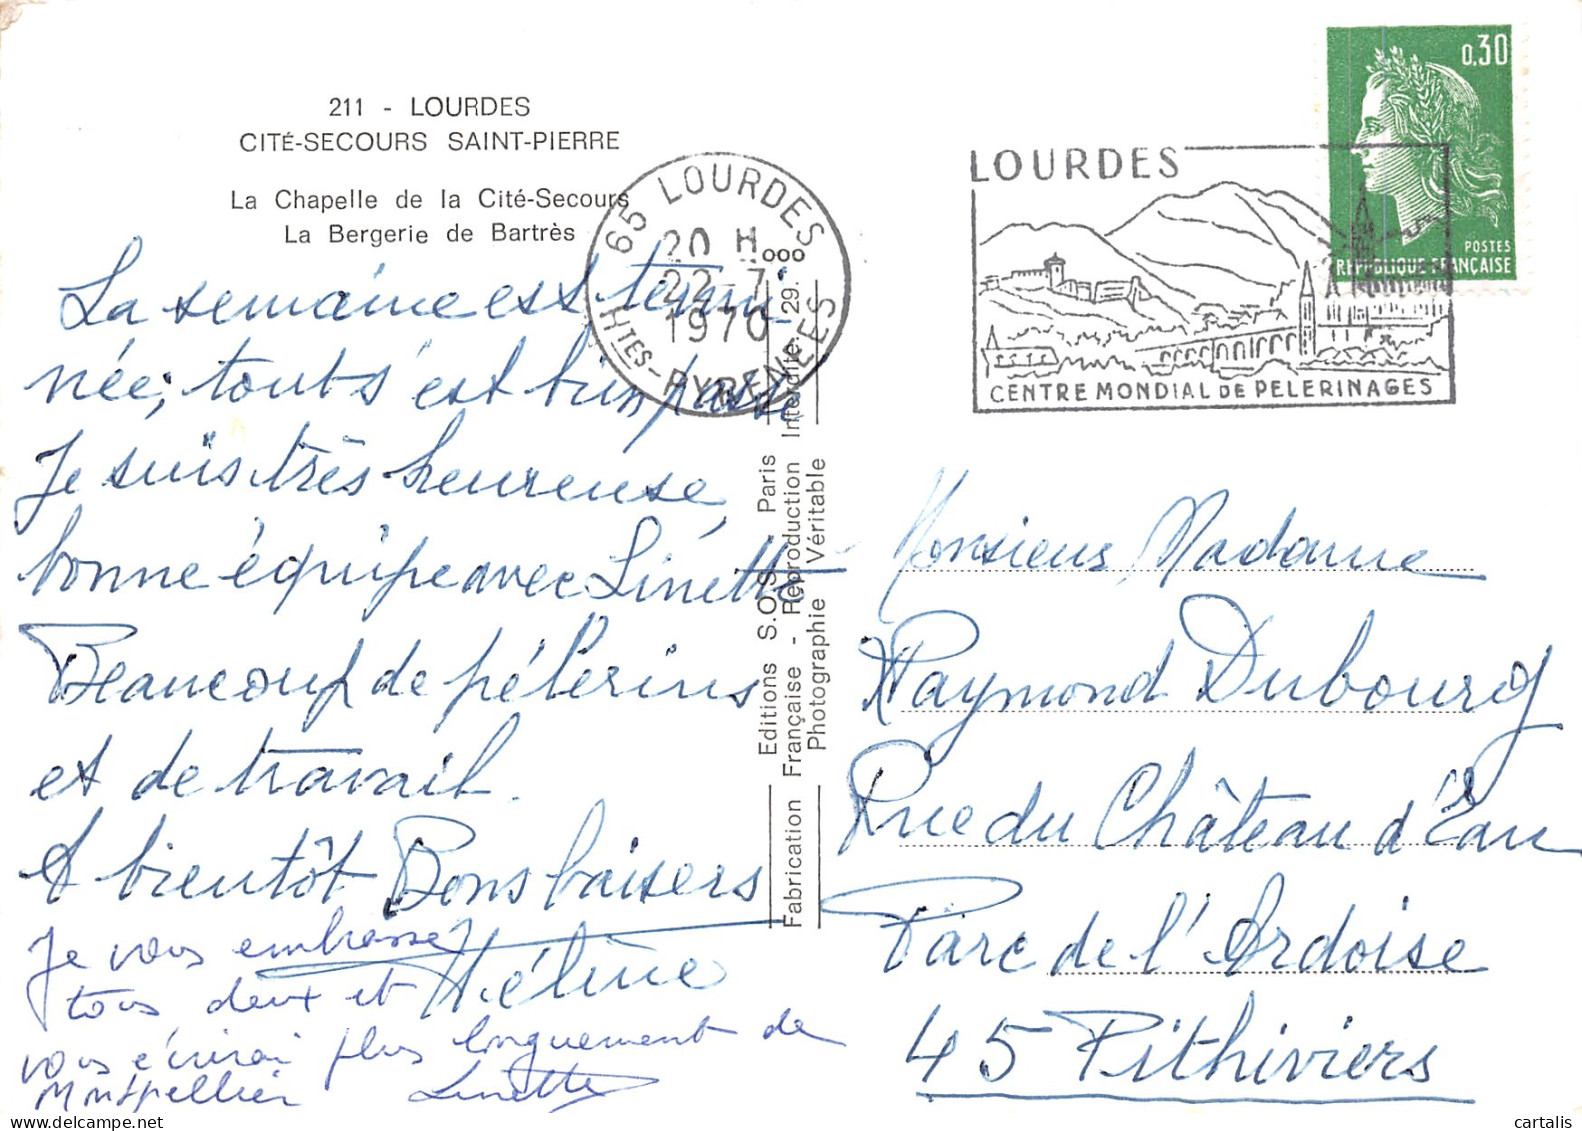 211 - LOURDES
CITÉ-SECOURS SAINT-PIERRE
La Chapelle de la Cité-Secours
La Bergerie de Bartrès
65 LOURDES
20 H
22-7
1970
HTES-PYRENEES
LOURDES
CENTRE MONDIAL DE PELERINAGES
0,30
POSTES
REPUBLIQUE FRANÇAISE
La semaine est termi-
née; tout s'est bien passé
Je suis très heureuse,
bonne équipe avec Linette
Beaucoup de pélerins
et de travail.
A bientôt Bons baisers
Hélène
Je vous embrasse
tous deux et
vous écrirai plus longuement de
Montpellier Linette
Editions S.O.S. Paris
Fabrication Française - Reproduction Interdite 29.
Photographie Véritable
Monsieur Madame
Raymond Dubourg
Rue du Château d'Eau
Parc de l'Ardoise
45 Pithiviers
cartalis